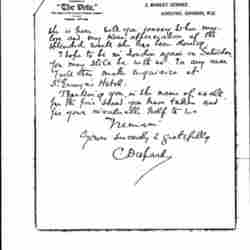 "The Vote,"
2, ROBERT STREET,
ADELPHI, LONDON, W.C.
she is here with you
love and my appreciation of the
splendid work she has been doing
I hope to be in London again on Saturday
you may still be with us. In any case
I will then make enquiries at
St. Ermin's Hotel.
Thanking you in the name of us all
for the fine stand you have taken and
for your invaluable help to us
I remain
Yours sincerely & gratefully
C Despard